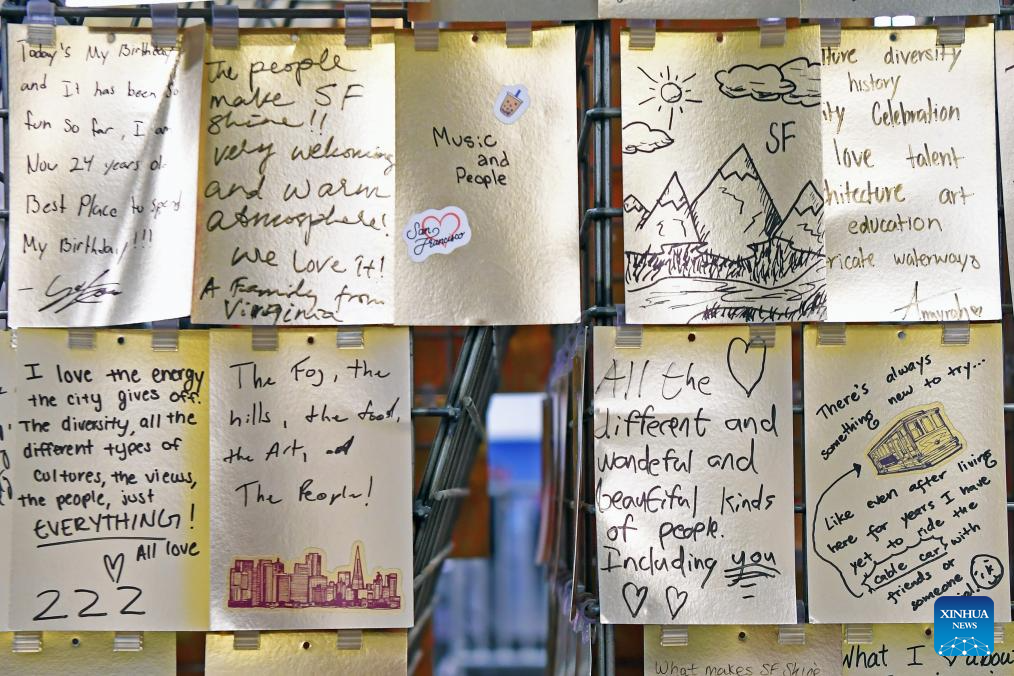 Today's My Birthday
and It has been so
fun so far, I am
Now 24 years ol
Best Place to spend
My Birthday!!!
The people
make SF
shine!!
very welcoming
and warm
atmosphere!
We Love it!
A Family from
Virginia
Music
and
People
San
Francisco
SF
ture diversity
history
ity Celebration
love talent
hitecture art
education
ricate waterways
I love the energy
the city gives off.
The diversity, all the
different types of
cultures, the views,
the people, just
EVERYTHING!
All love
222
The Fog, the
hills, the food,
the Art, and
The People!
All the
different and
wondeful and
beautiful kinds
of people.
Including you
There's always
something new to try...
Like even after living
here for years I have
yet to ride the
cable car, with
friends or
someone
XINHUA
NEWS
What makes SF Shine
What I about